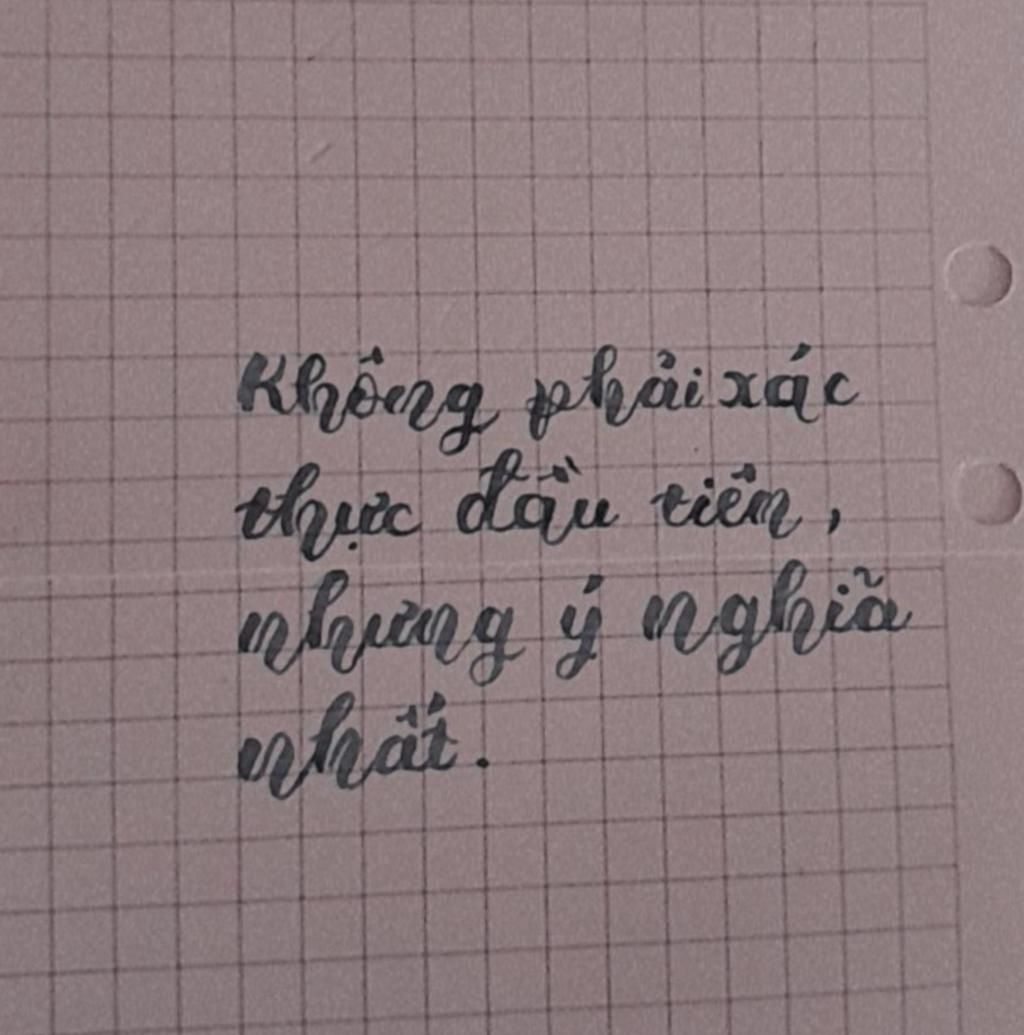 Không phải xác
thực đầu tiên,
nhưng ý nghĩa
nhất.